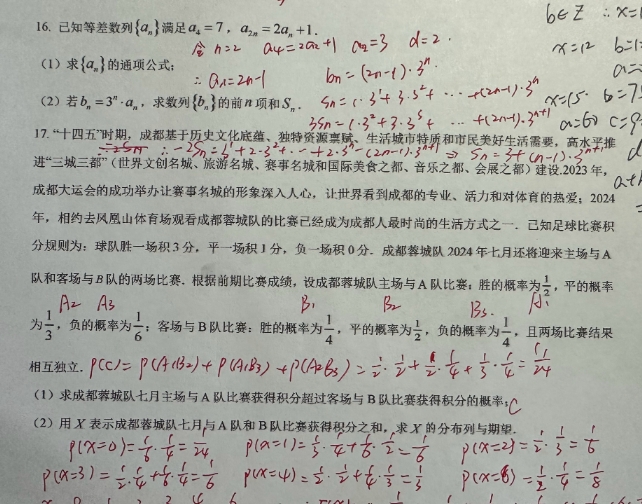 b∈Z ∴x=1
16. 已知等差数列{aₙ}满足a₄=7，a₂ₙ=2aₙ+1.
令n=2 a₄=2a₂+1 a₂=3 d=2.
x=12 b=1
（1）求{aₙ}的通项公式；
∴aₙ=2n-1 bₙ=(2n-1)·3ⁿ.
（2）若bₙ=3ⁿ·aₙ，求数列{bₙ}的前n项和Sₙ.
Sₙ=1·3¹+3·3²+ ··· +(2n-1)·3ⁿ
x=15 b=7
3Sₙ=1·3²+3·3³+ ··· +(2n-1)·3ⁿ⁺¹
17. “十四五”时期，成都基于历史文化底蕴、独特资源禀赋、生活城市特质和市民美好生活需要，高水平推
∴-2Sₙ=3¹+2·3²+···+2·3ⁿ-(2n-1)·3ⁿ⁺¹ ⇒ Sₙ=3+(n-1)·3ⁿ⁺¹
进“三城三都”（世界文创名城、旅游名城、赛事名城和国际美食之都、音乐之都、会展之都）建设.2023年，
成都大运会的成功举办让赛事名城的形象深入人心，让世界看到成都的专业、活力和对体育的热爱；2024
年，相约去凤凰山体育场观看成都蓉城队的比赛已经成为成都人最时尚的生活方式之一．已知足球比赛积
分规则为：球队胜一场积3分，平一场积1分，负一场积0分．成都蓉城队2024年七月还将迎来主场与A
队和客场与B队的两场比赛．根据前期比赛成绩，设成都蓉城队主场与A队比赛：胜的概率为1/2，平的概率
A₂ A₃ B₁ B₂ B₃ A₁
为1/3，负的概率为1/6；客场与B队比赛：胜的概率为1/4，平的概率为1/2，负的概率为1/4，且两场比赛结果
相互独立. P(C)=P(A₁B₂)+P(A₁B₃)+P(A₂B₃)=1/2·1/2+1/2·1/4+1/3·1/4=11/24
（1）求成都蓉城队七月主场与A队比赛获得积分超过客场与B队比赛获得积分的概率；C
（2）用X表示成都蓉城队七月与A队和B队比赛获得积分之和，求X的分布列与期望．
P(X=0)=1/6·1/4=1/24 P(X=1)=1/3·1/4+1/6·1/2=1/6 P(X=2)=1/2·1/3=1/6
P(X=3)=1/2·1/4+1/6·1/4=1/6 P(X=4)=1/2·1/2+1/4·1/3=1/3 P(X=6)=1/2·1/4=1/8